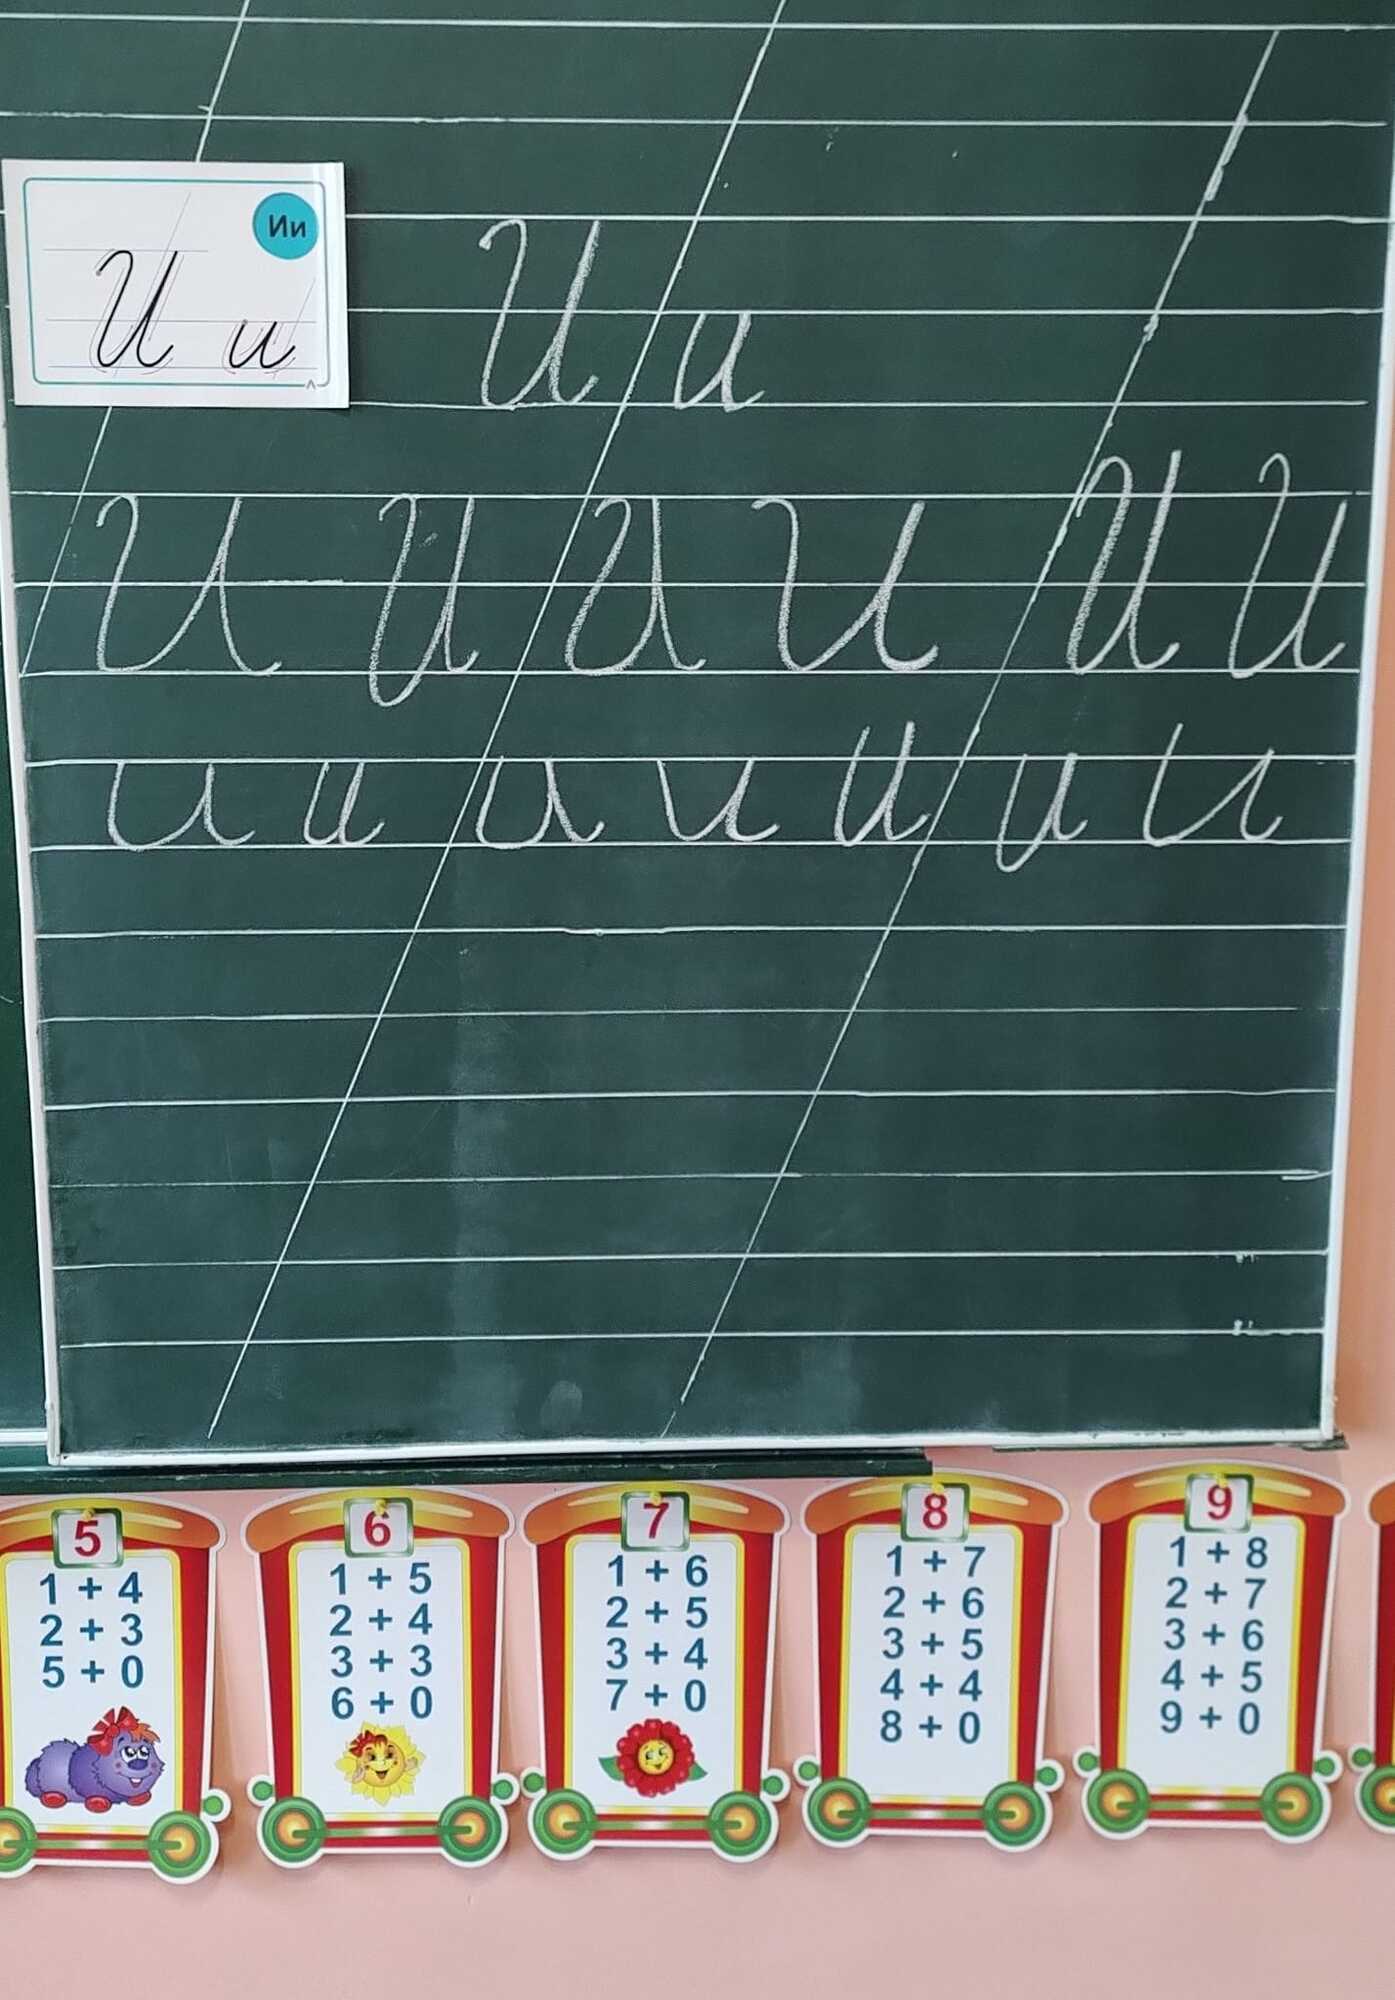 Ии
И и
И и
И И И И И И
и и и и и и и
5
1 + 4
2 + 3
5 + 0
6
1 + 5
2 + 4
3 + 3
6 + 0
7
1 + 6
2 + 5
3 + 4
7 + 0
8
1 + 7
2 + 6
3 + 5
4 + 4
8 + 0
9
1 + 8
2 + 7
3 + 6
4 + 5
9 + 0